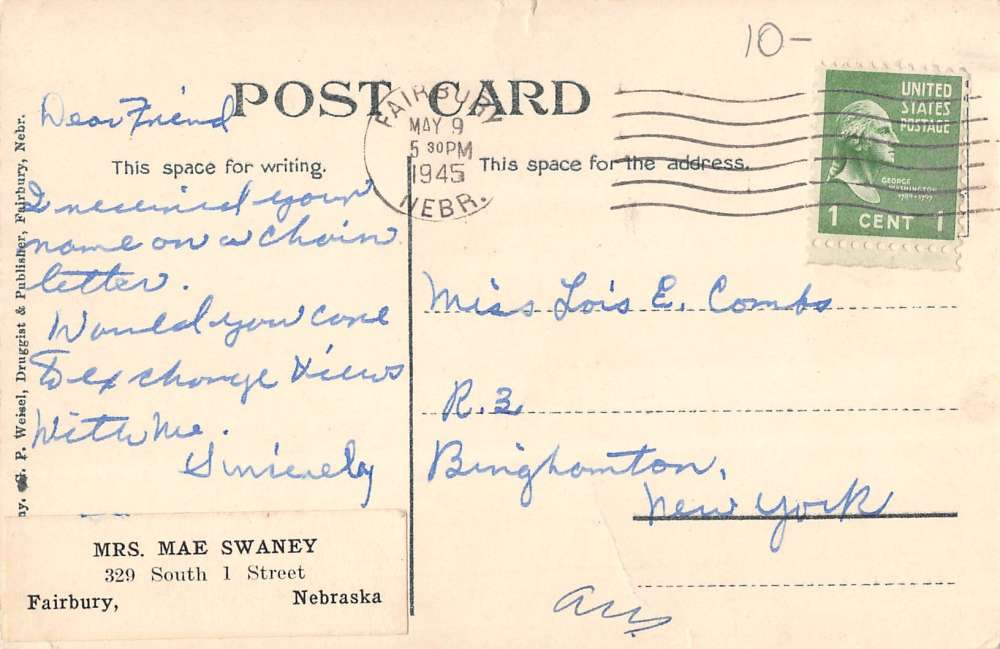 10-
POST CARD
FAIRBURY
MAY 9
5 30 PM
1945
NEBR.
UNITED
STATES
POSTAGE
GEORGE
WASHINGTON
1789-1797
1 CENT 1
This space for writing.
This space for the address.
Dear Friend
I received your
name on a chain
letter.
Would you care
to exchange views
with me.
Sincerely
MRS. MAE SWANEY
329 South 1 Street
Fairbury, Nebraska
Miss Lois E. Combs
R. 3
Binghamton,
New York
P. Weisel, Druggist & Publisher, Fairbury, Nebr.